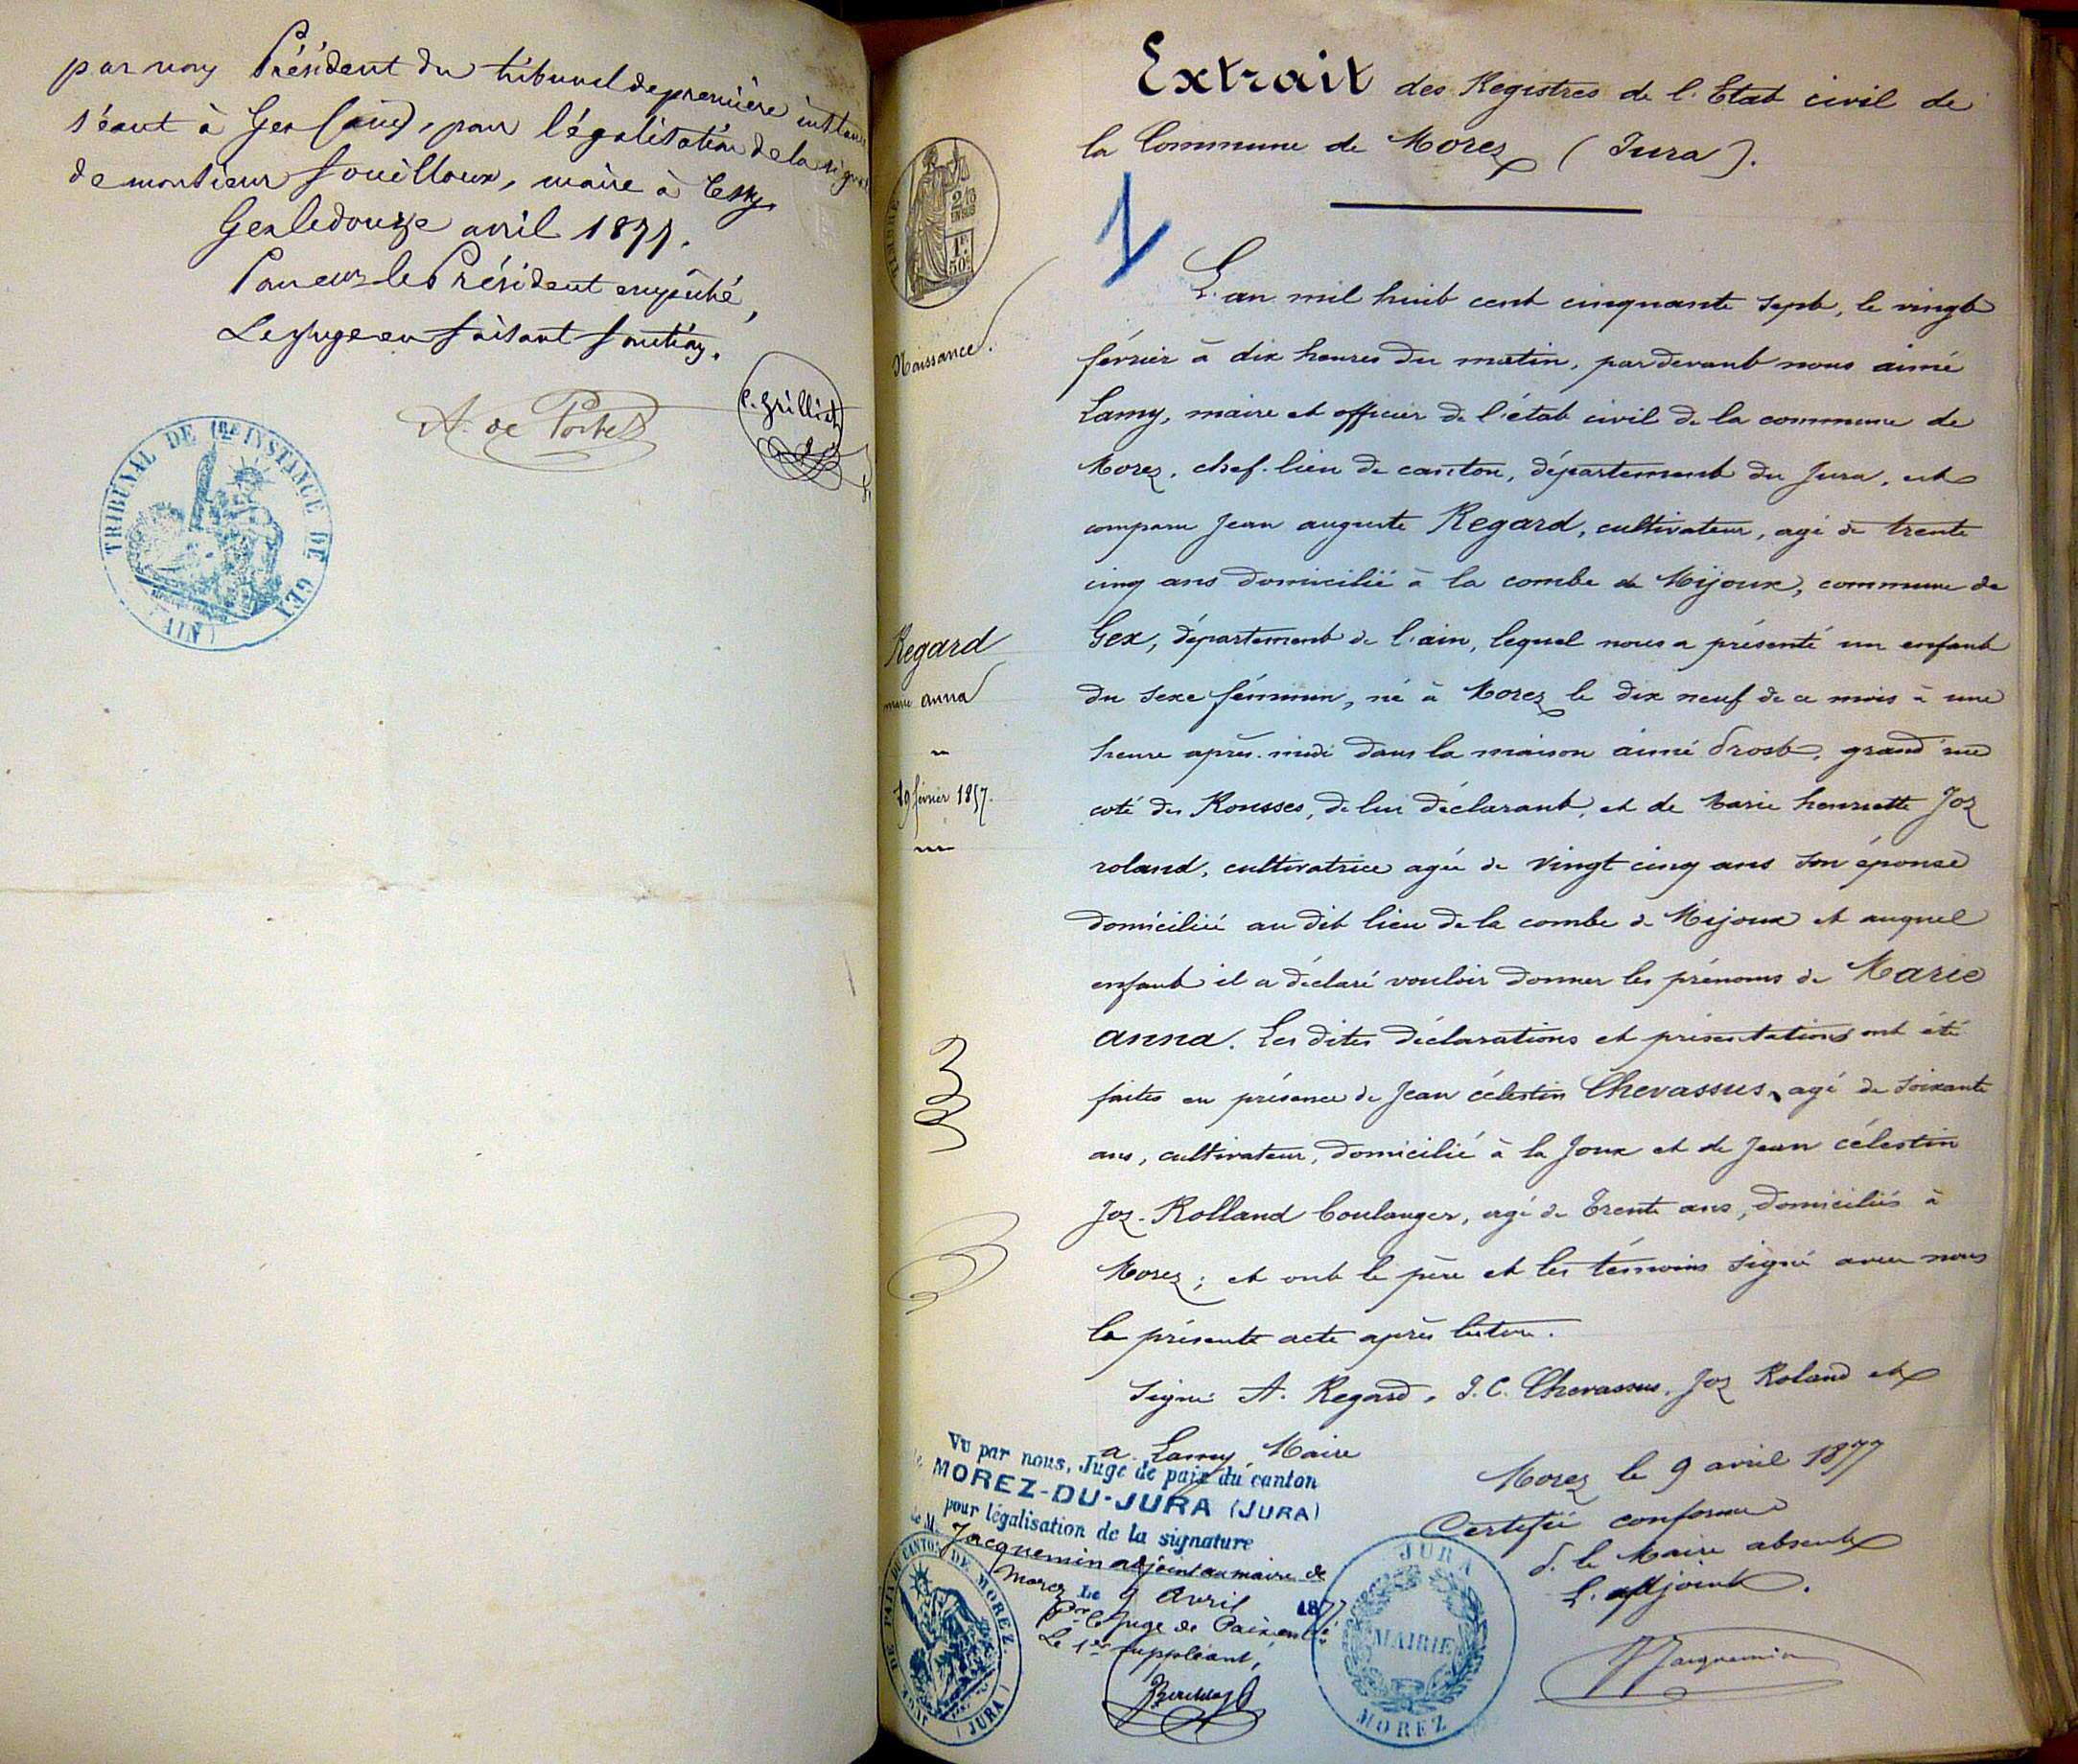 par nous Président du tribunal de première instance
séant à Gex (ain), pour légalisation de la sign
de monsieur fouilloux, maire à Cessy.
Gex le douze avril 1877.
Pour M. le Président empêché,
Le Juge en faisant fonction.
A. de Portes
C. Grilliet
TRIBUNAL DE 1RE INSTANCE DE GEX
(AIN)
Extrait des Registres de l'Etat civil de
la Commune de Morez (Jura).
TIMBRE
2/10
EN SUS
1F
50C
1
Naissance.
L'an mil huit cent cinquante sept, le vingt
février à dix heures du matin, pardevant nous aimé
Lamy, maire et officier de l'état civil de la commune de
Morez, chef-lieu de canton, département du Jura, est
comparu Jean auguste Regard, cultivateur, agé de trente
cinq ans domicilié à la combe de Mijoux, commune de
Gex, département de l'ain, lequel nous a présenté un enfant
du sexe féminin, né à Morez le dix neuf de ce mois à une
heure après-midi dans la maison aimé Prost, grand'rue
coté des Rousses, de lui déclarant, et de Marie henriette Joz
roland, cultivatrice agée de vingt cinq ans son épouse
domiciliée au dit lieu de la combe de Mijoux et auquel
enfant il a déclaré vouloir donner les prénoms de Marie
anna. Les dites déclarations et présentations ont été
faites en présence de Jean célestin Chevassus, agé de soixante
ans, cultivateur, domicilié à la Joux et de Jean célestin
Joz-Rolland boulanger, agé de trente ans, domiciliés à
Morez; et ont le père et les témoins signé avec nous
le présente acte après lecture.
Signé A. Regard, J. C. Chevassus, Joz Roland et
a. Lamy, Maire
Regard
marie anna
19 février 1857.
Vu par nous, Juge de paix du canton
de MOREZ-DU-JURA (JURA)
pour légalisation de la signature
de M. Jacquemin adjoint au maire de
Morez Le 9 Avril 1877
Pr le Juge de Paix empê
Le 1er suppléant,
JUSTICE DE PAIX DU CANTON DE MOREZ
(JURA)
Morez le 9 avril 1877
Certifié conforme
P. le Maire absent
L'adjoint.
Jacquemin
JURA
MAIRIE
MOREZ